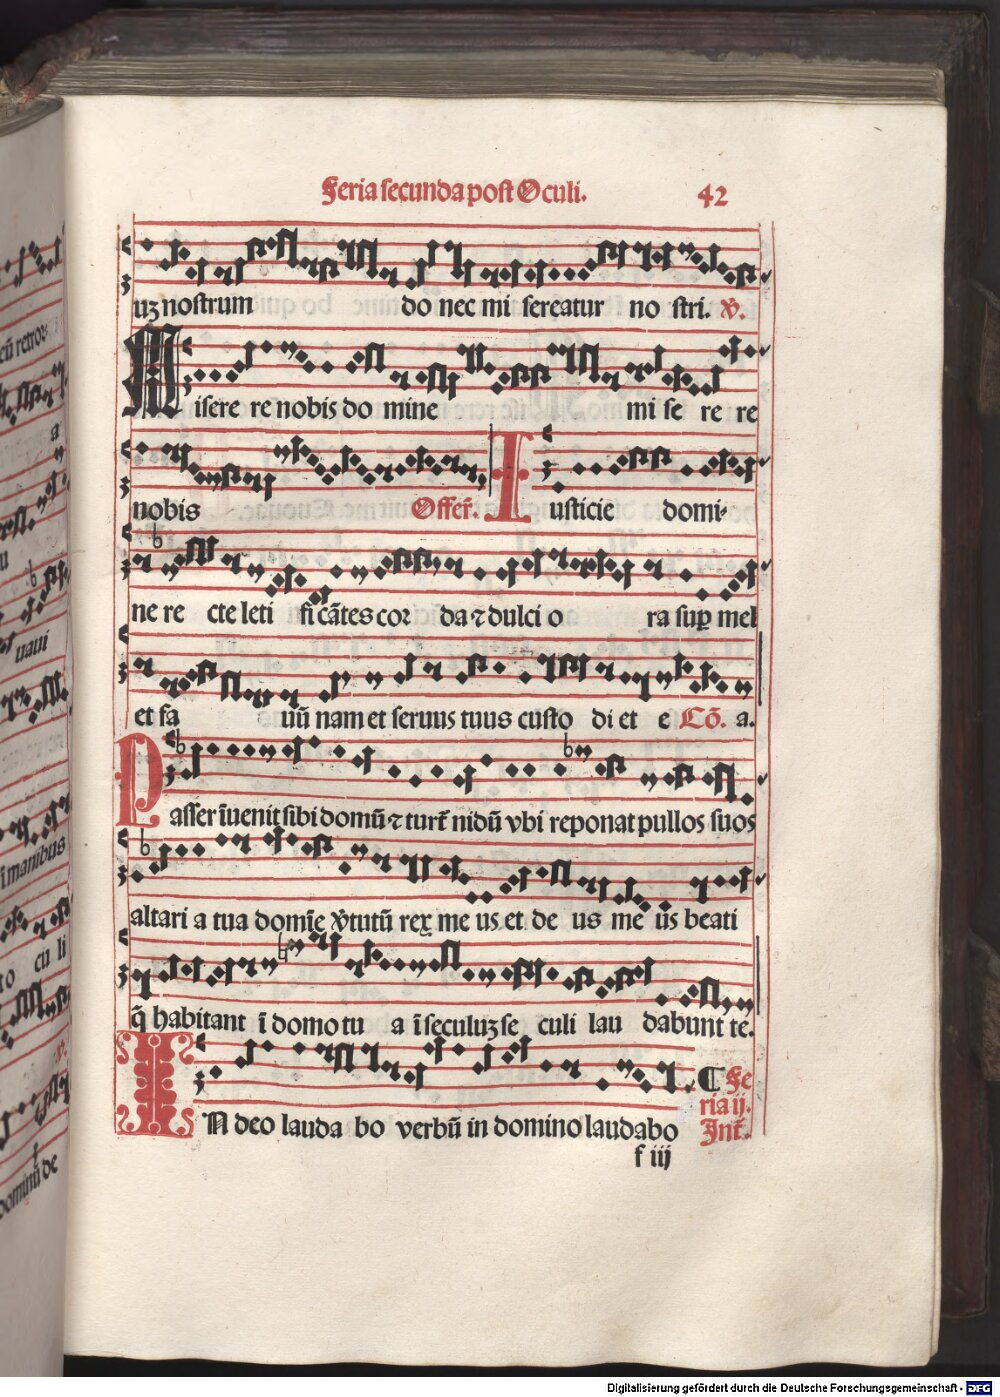 Feria secunda post Oculi. 42
uꝫ nostrum do nec mi sereatur no stri. ꝟ.
Misere re nobis do mine mi se re re
nobis Offer̃. Iusticie domi-
ne re cte leti fi cãtes cor da ⁊ dulci o ra suꝑ mel
et fa uũ nam et seruus tuus custo di et e Cõ. a.
Passer ĩuenit sibi domũ ⁊ turt̃ nidũ vbi reponat pullos suos
altari a tua domĩe ꝟtutũ rex me us et de us me us beati
q̃ habitant ĩ domo tu a ĩ seculuꝫ se culi lau dabunt te.
IN deo lauda bo verbũ in domino laudabo
¶ Fe
ria ij.
Int̃.
f iij
cũ retro
a
u
uaui
i manibus
o cu li
ꝟ.
dominũ de
Digitalisierung gefördert durch die Deutsche Forschungsgemeinschaft - DFG